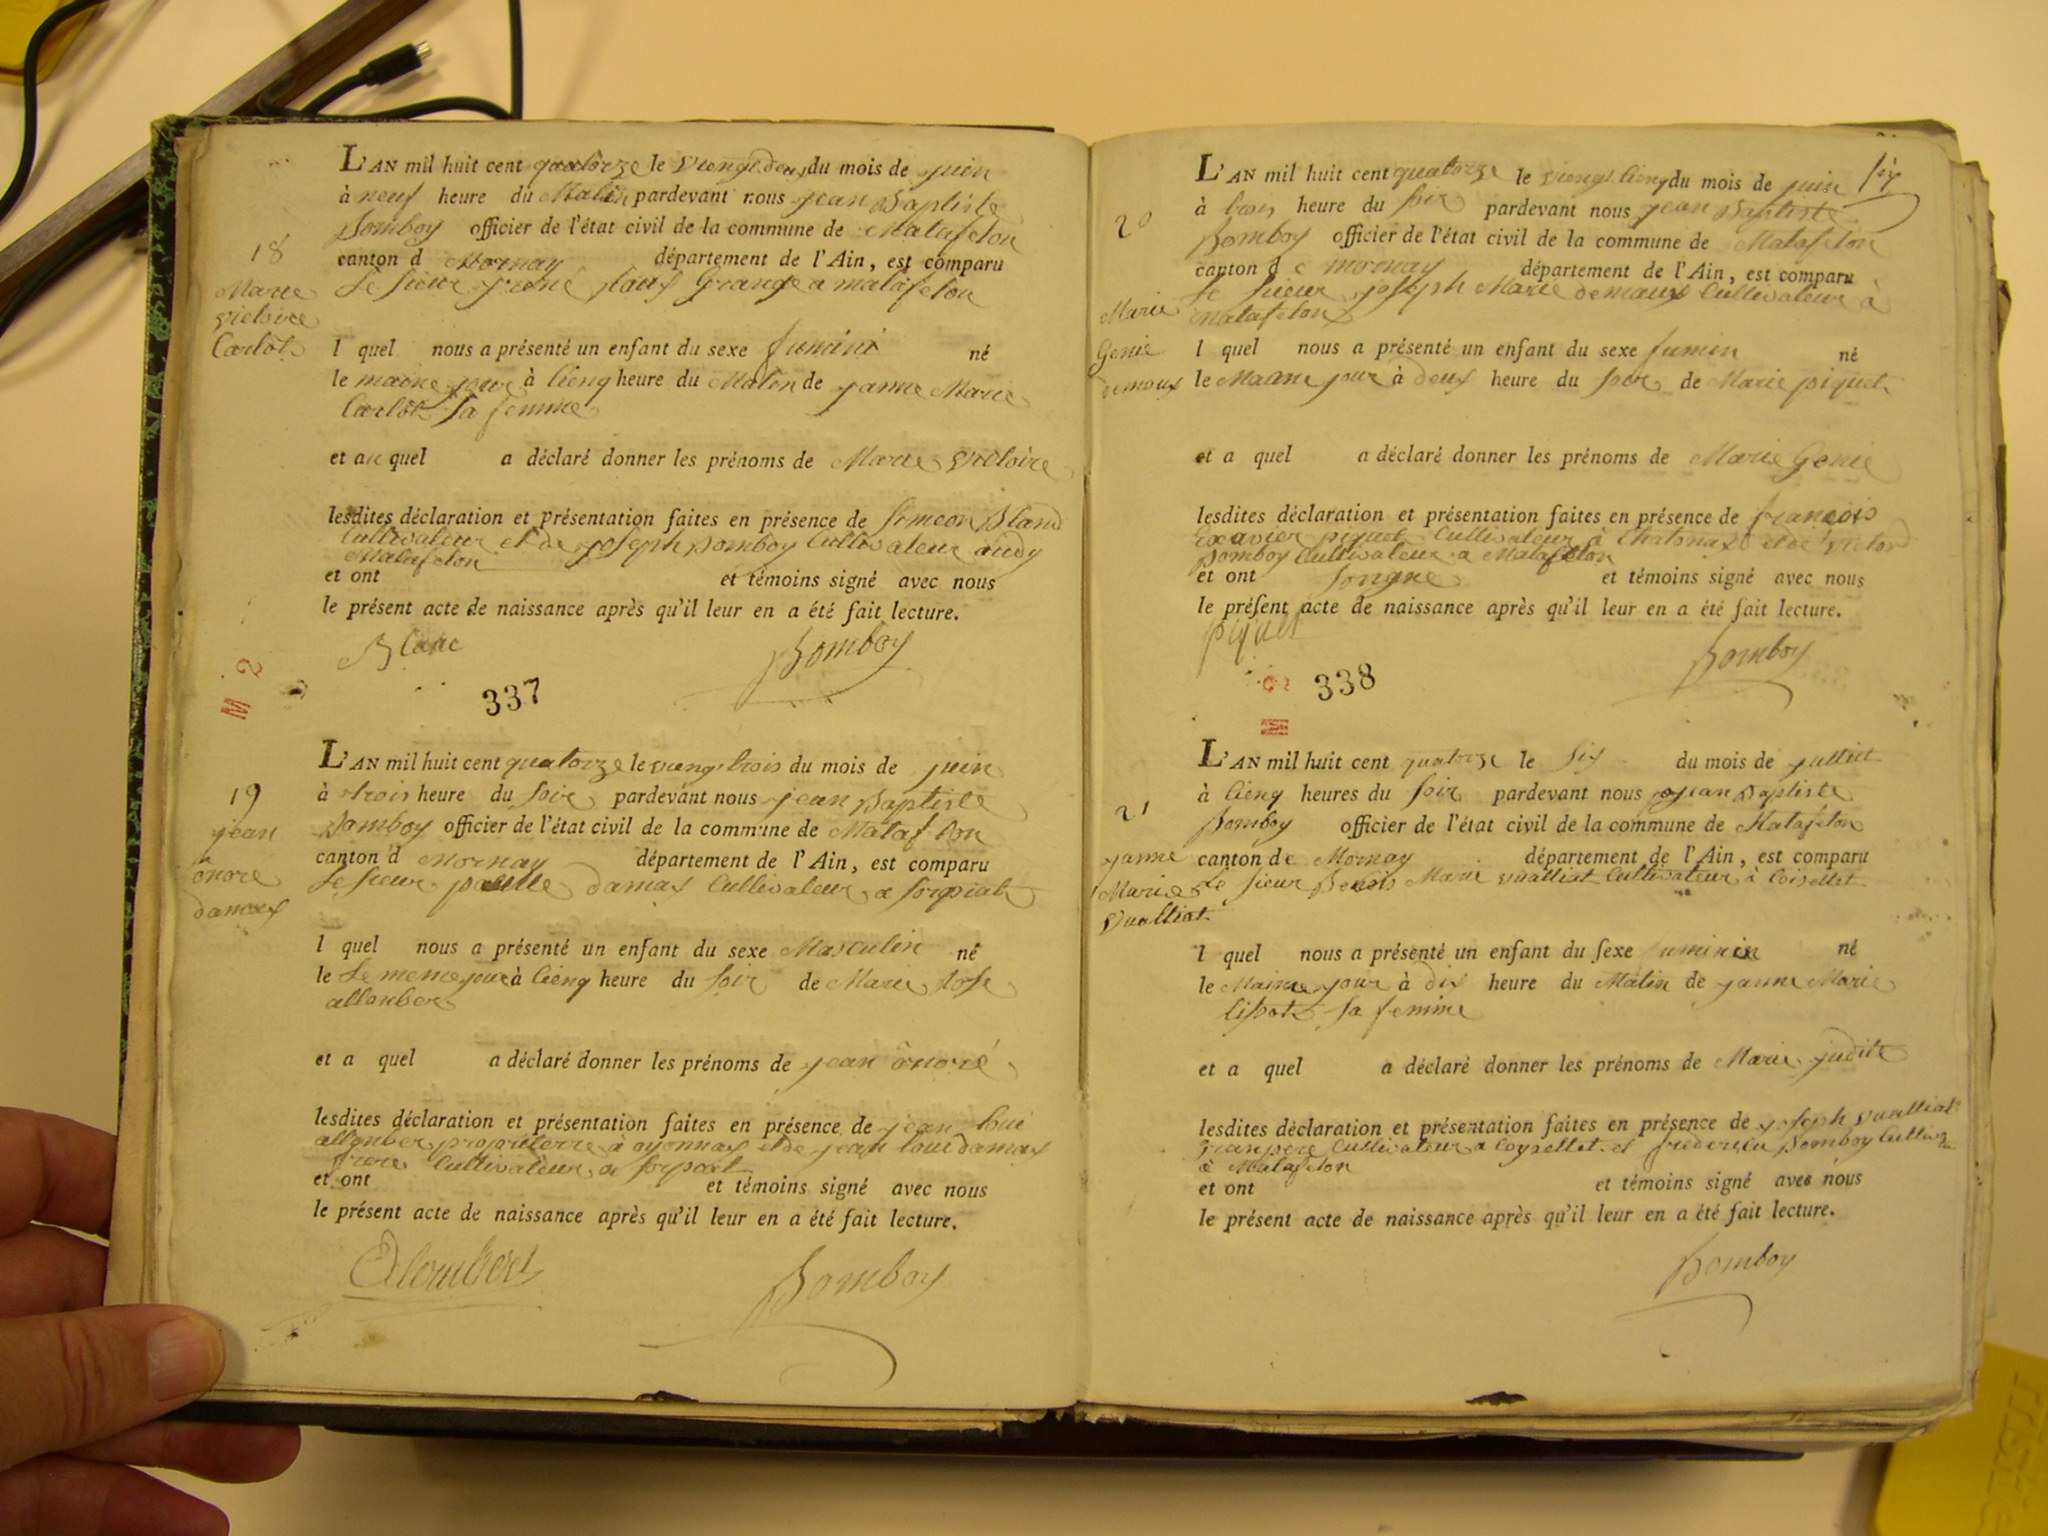 L'AN mil huit cent quatorze le viengt deux du mois de juin
à neuf heure du Matin pardevant nous jean Baptiste
Bomboy officier de l'état civil de la commune de Matafelon
canton d Mornay département de l'Ain, est comparu
Le sieur Grange a matafelon
18
Marie
victoire
Carlot
l quel nous a présenté un enfant du sexe fumini né
le maime jour à cienq heure du Matin de janne Marie
Carlot sa femme
et au quel a déclaré donner les prénoms de Marie victoire
lesdites déclaration et présentation faites en présence de simeon Bland
Cultivateur et de joseph Bomboy Cultivateur audy
Matafelon
et ont et témoins signé avec nous
le présent acte de naissance après qu'il leur en a été fait lecture.
Blanc Bomboy
M 2
337
L'AN mil huit cent quatorze le viengt trois du mois de juin
à trois heure du soir pardevant nous jean Baptiste
Bomboy officier de l'état civil de la commune de Matafelon
canton d Mornay département de l'Ain, est comparu
Le sieur damas Cultivateur a
19
jean
ônore
damas
l quel nous a présenté un enfant du sexe Masculin né
le Le meme jour à cienq heure du soir de Marie rose
allonber
et a quel a déclaré donner les prénoms de jean ônoré
lesdites déclaration et présentation faites en présence de jean loui
allonber propriéterre à oyonnax et de jean loui damas
frere Cultivateur a
et ont et témoins signé avec nous
le présent acte de naissance après qu'il leur en a été fait lecture.
Alombert Bomboy
L'AN mil huit cent quatorze le viengt cienq du mois de juin
à trois heure du soir pardevant nous jean Baptiste
Bomboy officier de l'état civil de la commune de Matafelon
canton d e mornay département de l'Ain, est comparu
Le sieur joseph Marie demaux Cultivateur à
Matafelon
20
Marie
Genie
demaux
l quel nous a présenté un enfant du sexe fumin né
le Maime jour à deux heure du soir de Marie piquet
et a quel a déclaré donner les prénoms de Marie Genie
lesdites déclaration et présentation faites en présence de françois
piquet Cultivateur à Chatonax et de victord
Bomboy Cultivateur a Matafelon
et ont songne et témoins signé avec nous
le présent acte de naissance après qu'il leur en a été fait lecture.
piquet Bomboy
338
L'AN mil huit cent quatorze le six du mois de julliet
à cienq heures du soir pardevant nous jean Baptiste
Bomboy officier de l'état civil de la commune de Matafelon
canton de Mornay département de l'Ain, est comparu
Le sieur Benois Marie vualliat Cultivateur à Coisellet
21
janne
Marie
vualliat
l quel nous a présenté un enfant du sexe fuminin né
le Maime jour à dix heure du Matin de janne Marie
sa femme
et a quel a déclaré donner les prénoms de Marie judite
lesdites déclaration et présentation faites en présence de joseph vualliat
Granpere Cultivateur a Coysellet et Bomboy
a Matafelon
et ont et témoins signé avec nous
le présent acte de naissance après qu'il leur en a été fait lecture.
Bomboy